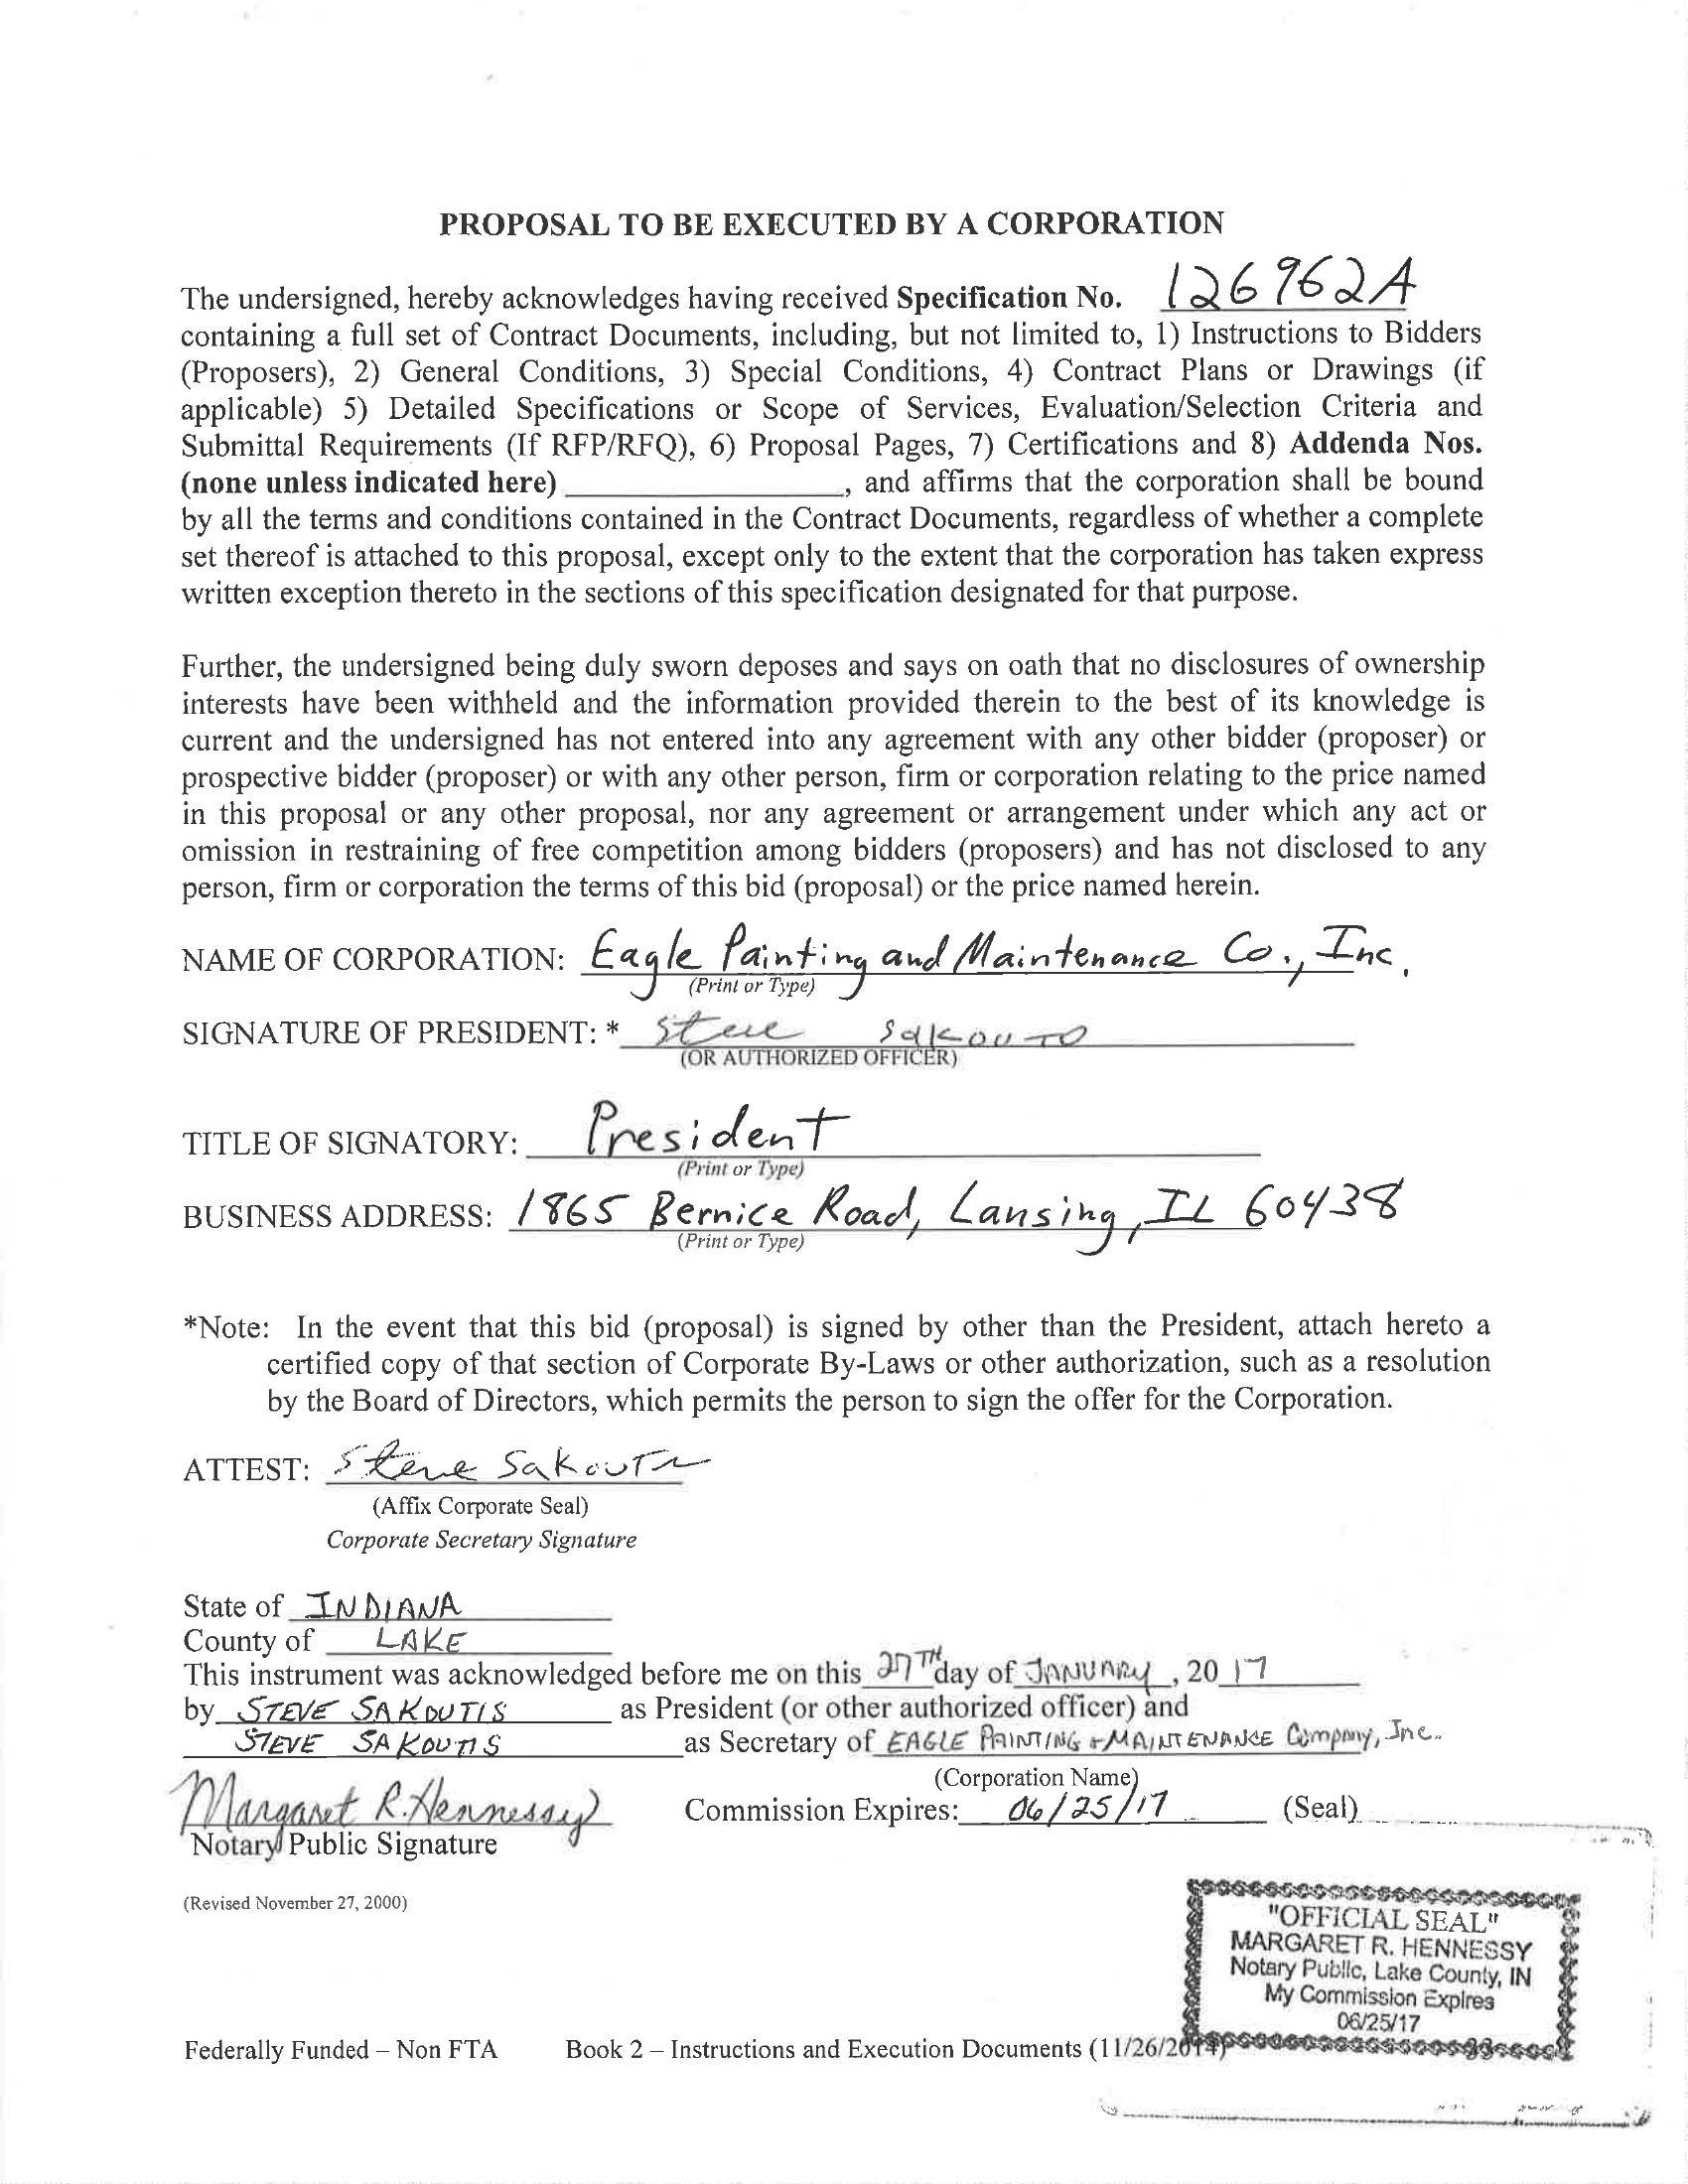 PROPOSAL TO BE EXECUTED BY A CORPORATION
The undersigned, hereby acknowledges having received Specification No. 126962A
containing a full set of Contract Documents, including, but not limited to, 1) Instructions to Bidders
(Proposers), 2) General Conditions, 3) Special Conditions, 4) Contract Plans or Drawings (if
applicable) 5) Detailed Specifications or Scope of Services, Evaluation/Selection Criteria and
Submittal Requirements (If RFP/RFQ), 6) Proposal Pages, 7) Certifications and 8) Addenda Nos.
(none unless indicated here) ____________, and affirms that the corporation shall be bound
by all the terms and conditions contained in the Contract Documents, regardless of whether a complete
set thereof is attached to this proposal, except only to the extent that the corporation has taken express
written exception thereto in the sections of this specification designated for that purpose.
Further, the undersigned being duly sworn deposes and says on oath that no disclosures of ownership
interests have been withheld and the information provided therein to the best of its knowledge is
current and the undersigned has not entered into any agreement with any other bidder (proposer) or
prospective bidder (proposer) or with any other person, firm or corporation relating to the price named
in this proposal or any other proposal, nor any agreement or arrangement under which any act or
omission in restraining of free competition among bidders (proposers) and has not disclosed to any
person, firm or corporation the terms of this bid (proposal) or the price named herein.
NAME OF CORPORATION: Eagle Painting and Maintenance Co., Inc.
(Print or Type)
SIGNATURE OF PRESIDENT: * Steve Sakoutis
(OR AUTHORIZED OFFICER)
TITLE OF SIGNATORY: President
(Print or Type)
BUSINESS ADDRESS: 1865 Bernice Road, Lansing, IL 60438
(Print or Type)
*Note: In the event that this bid (proposal) is signed by other than the President, attach hereto a
certified copy of that section of Corporate By-Laws or other authorization, such as a resolution
by the Board of Directors, which permits the person to sign the offer for the Corporation.
ATTEST: Steve Sakoutis
(Affix Corporate Seal)
Corporate Secretary Signature
State of INDIANA
County of LAKE
This instrument was acknowledged before me on this 27TH day of JANUARY, 20 17
by STEVE SAKOUTIS as President (or other authorized officer) and
STEVE SAKOUTIS as Secretary of EAGLE PAINTING + MAINTENANCE Company, Inc.
(Corporation Name)
Margaret R. Hennessy Commission Expires: 06/25/17 (Seal)
Notary Public Signature
(Revised November 27, 2000)
"OFFICIAL SEAL"
MARGARET R. HENNESSY
Notary Public, Lake County, IN
My Commission Expires
06/25/17
Federally Funded – Non FTA Book 2 – Instructions and Execution Documents (11/26/2014)